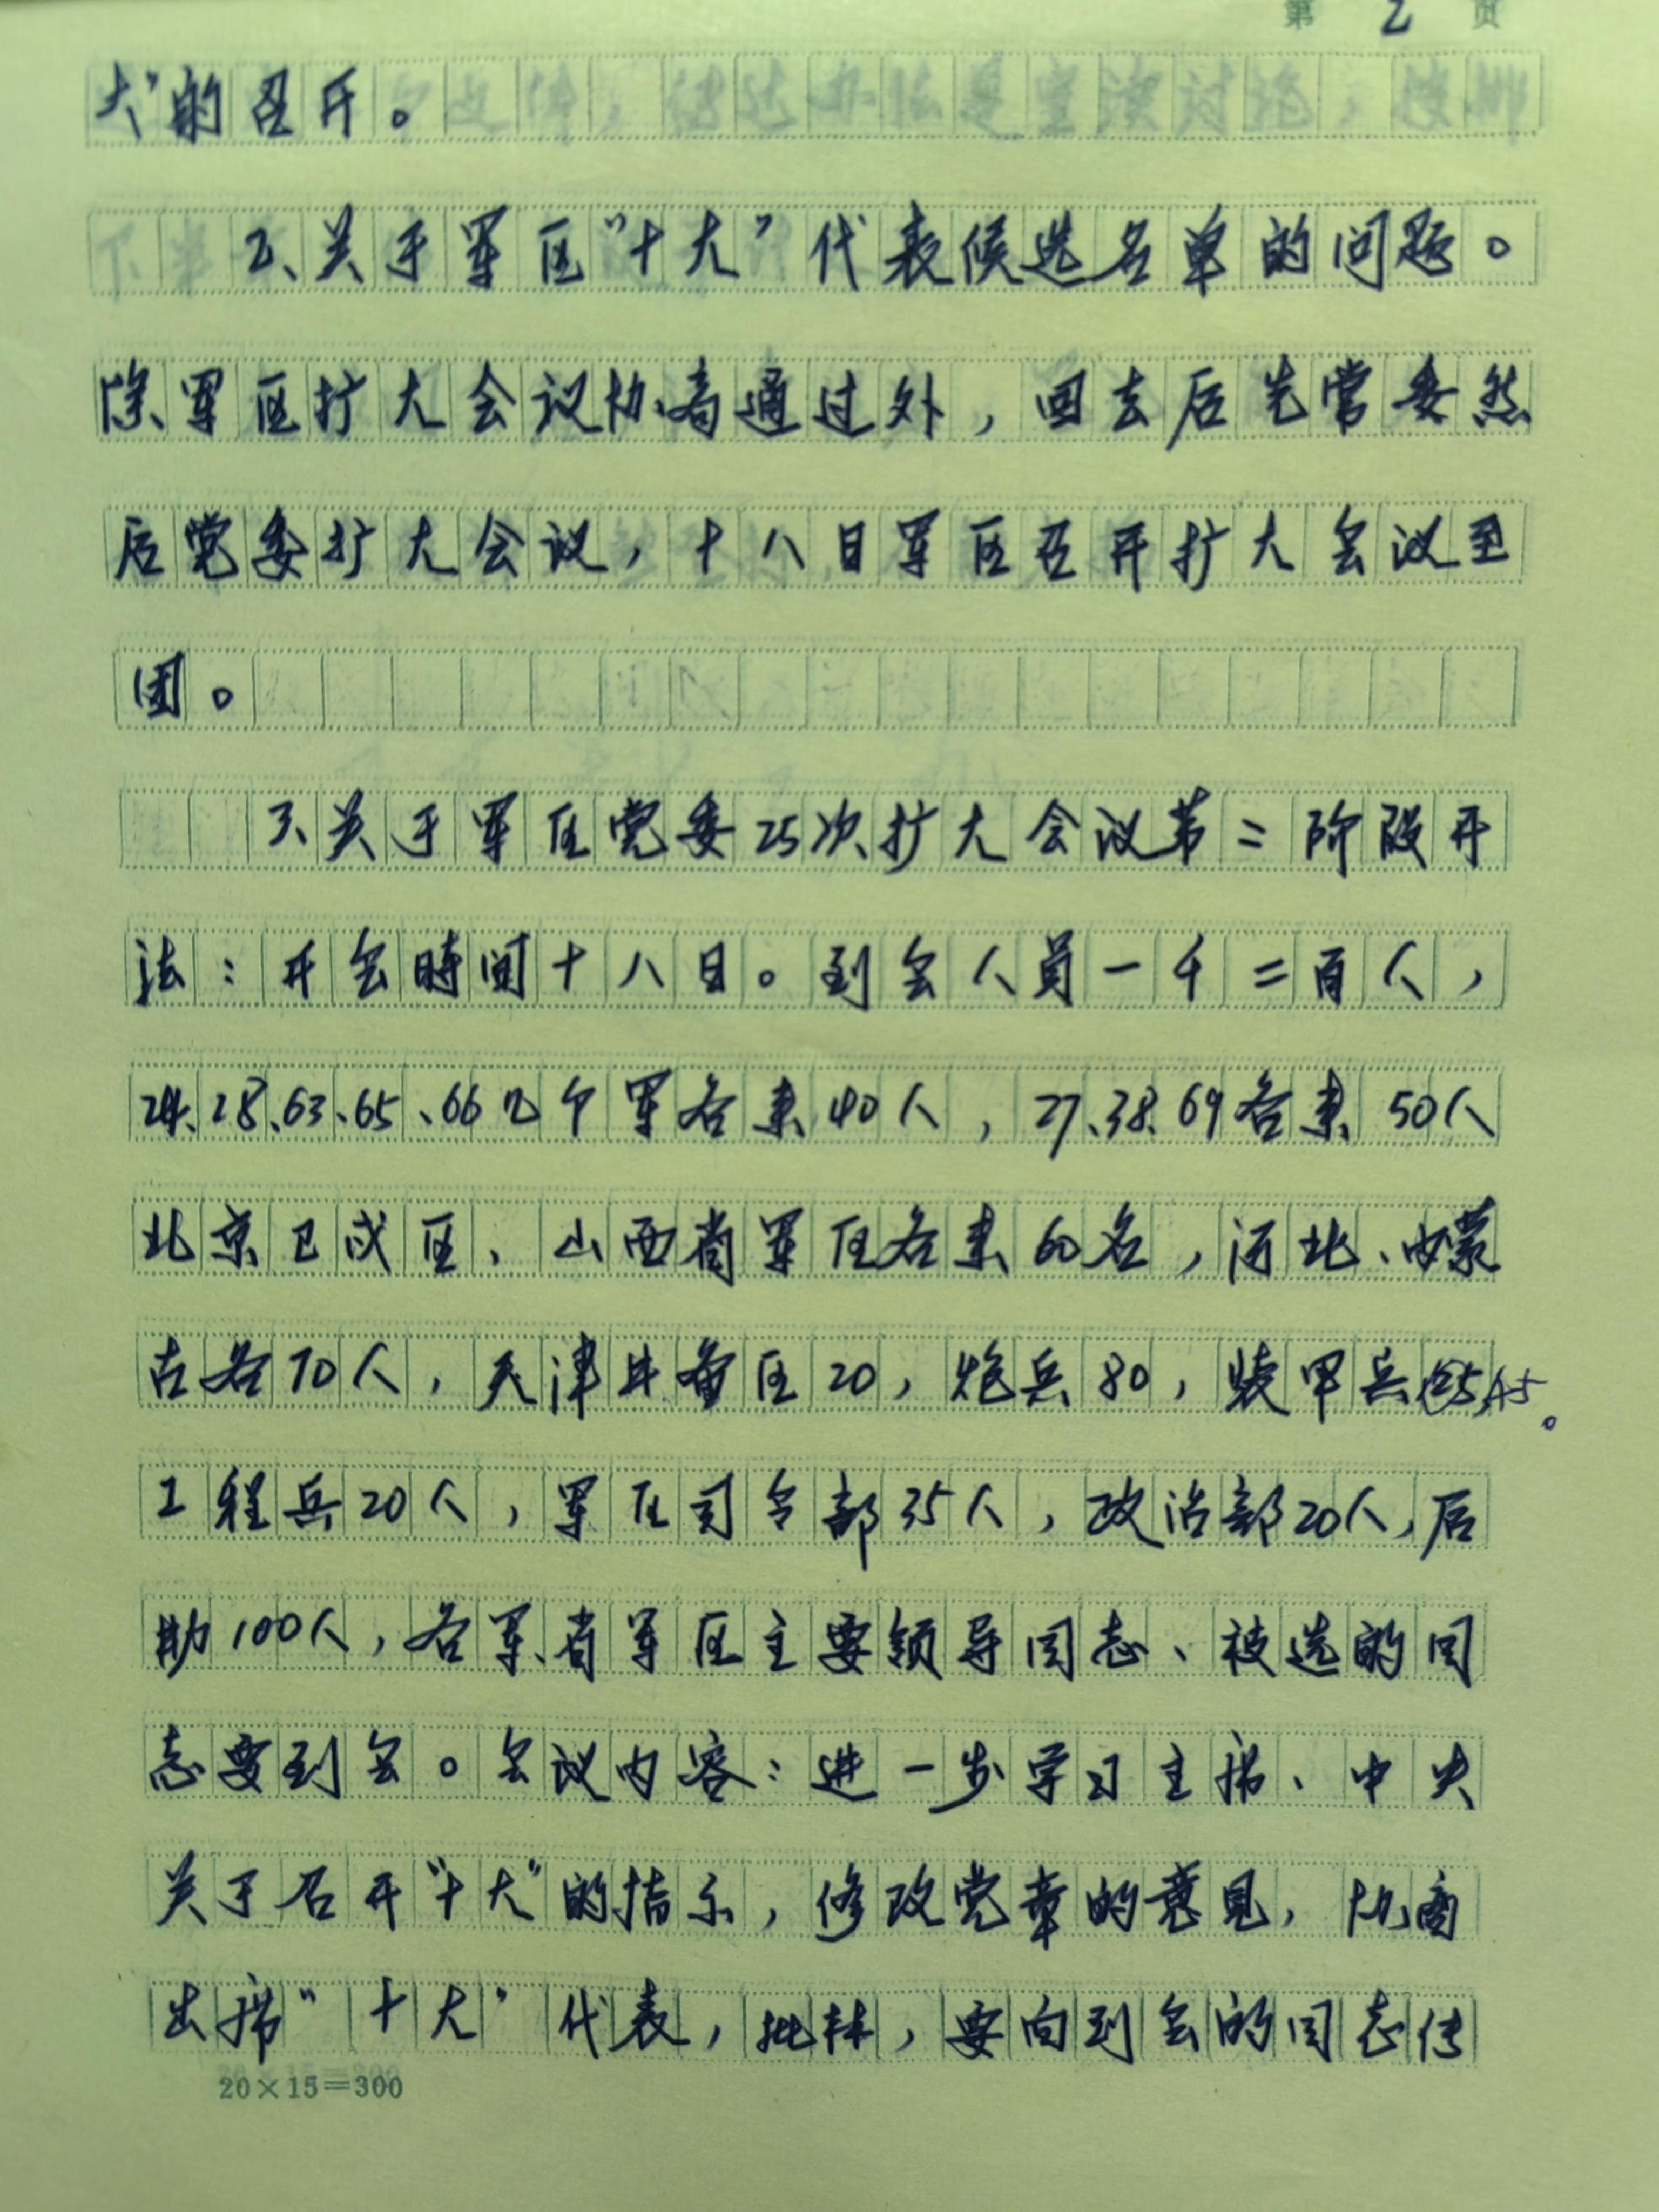 第 2 页
大”的召开。
2、关于军区“十大”代表候选名单的问题。
除军区扩大会议协商通过外，回去后先常委然
后党委扩大会议，十八日军区召开扩大会议至
团。
3、关于军区党委25次扩大会议第二阶段开
法：开会時间十八日。到会人员一千二百人，
24、28、63、65、66几个军各来40人，27、38、69各来50人
北京卫戍区、山西省军区各来60名，河北、内蒙
古各70人，天津井备区20，炮兵80，装甲兵45。
工程兵20人，军区司令部35人，政治部20人，后
勤100人，各军、省军区主要领导同志、被选的同
志要到会。会议内容：进一步学习主席、中央
关于召开“十大”的指示，修改党章的意见，协商
出席“十大”代表，批林，要向到会的同志传
20×15=300